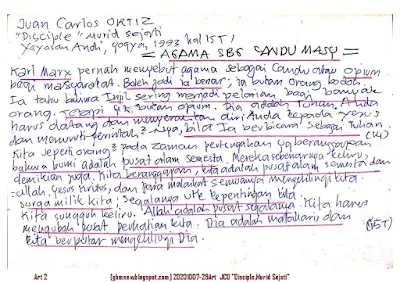 Juan Carlos ORTIZ
"Disciple" murid sejati
Yayasan Andi, yogya, 1993 hal 157
= AGAMA SBG CANDU MASY =
Karl Marx pernah menyebut agama sebagai Candu atau Opium
bagi masyarakat. Boleh jadi ia benar; ia bukan orang bodoh
Ia tahu bahwa Injil sering menjadi pelarian bagi banyak
orang. Tetapi Yesus bukan opium. Dia adalah Tuhan. Anda
harus datang dan menyerahkan diri Anda kepada Yesus
dan menuruti perintah2 Nya, bila Ia berbicara sebagai Tuhan.
Kita seperti orang2 pada zaman pertengahan yg beranggapan
bahwa bumi adalah pusat alam semesta. Mereka sebenarnya keliru,
demikian juga. Kita beranggapan, kita adalah pusat alam semesta dan
Allah, Yesus Kristus, dan para malaikat semuanya mengelilingi kita.
surga milik kita; segalanya utk kepentingan kita
Kita sungguh keliru. Allah adalah pusat segalanya. Kita harus
mengubah pusat perhatian kita. Dia adalah matahari dan
kita berputar mengelilingi Dia.
Art 2 (ghmnewblogspot.com) 20201007-29Art JCO "Disciple,Murid Sejati"